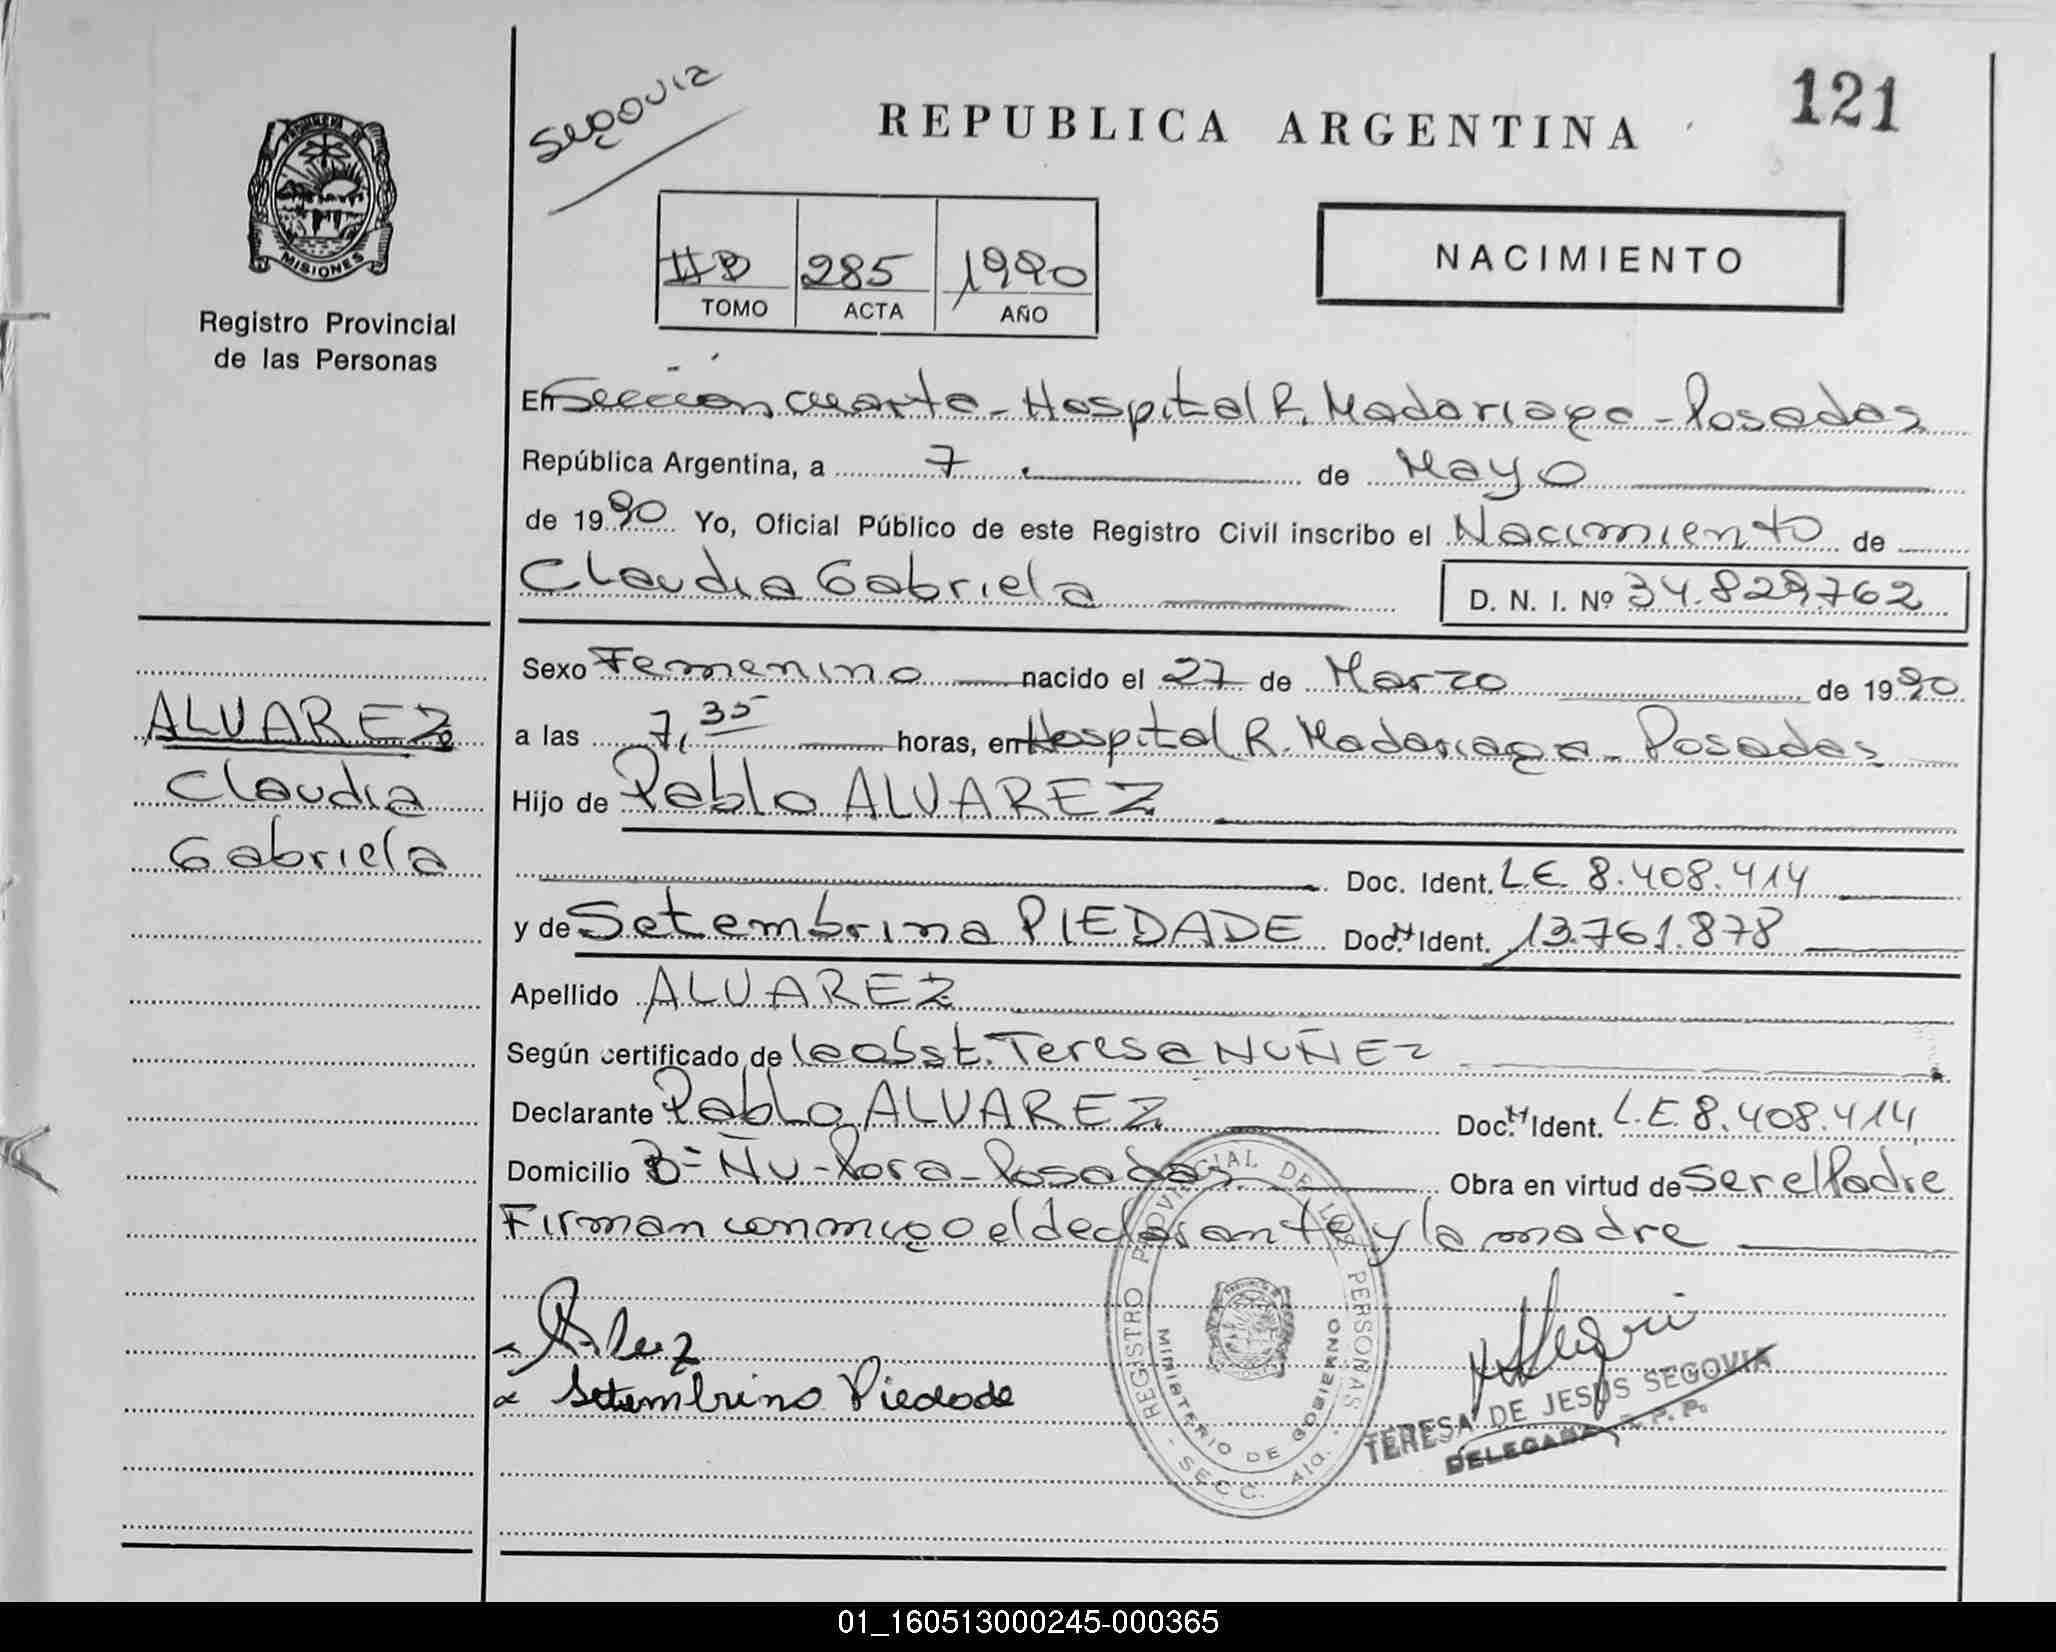 Segovia
REPUBLICA ARGENTINA
121
PROVINCIA DE MISIONES
Registro Provincial
de las Personas
II B 285 1990
TOMO ACTA AÑO
NACIMIENTO
En Sección cuarta - Hospital R. Madariaga - Posadas
República Argentina, a 7 de Mayo
de 1990 Yo, Oficial Público de este Registro Civil inscribo el Nacimiento de
Claudia Gabriela D. N. I. Nº 34.829.762
Sexo Femenino nacido el 27 de Marzo de 1990
ALVAREZ
Claudia
Gabriela
a las 7,35 horas, en Hospital R. Madariaga - Posadas
Hijo de Pablo ALVAREZ
Doc. Ident. L.E. 8.408.414
y de Setembrina PIEDADE Doc. Ident. 13.761.878
Apellido ALVAREZ
Según certificado de la obst. Teresa NUÑEZ
Declarante Pablo ALVAREZ Doc. Ident. L.E. 8.408.414
Domicilio Bº Ñu-Pora - Posadas Obra en virtud de ser el Padre
Firman conmigo el declarante y la madre
Setembrina Piedade
REGISTRO PROVINCIAL DE LAS PERSONAS
MINISTERIO DE GOBIERNO
SECC. 4ta.
TERESA DE JESUS SEGOVIA
DELEGADA R. P. P.
01_160513000245-000365